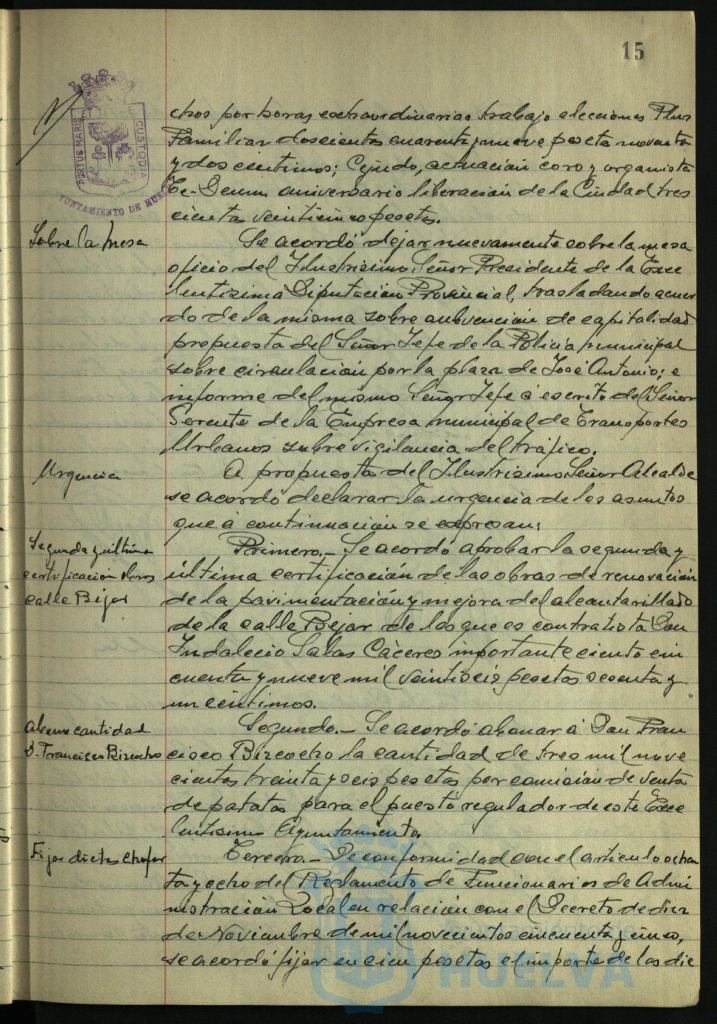 15
PORTUS MARIS CUSTODIA
AYUNTAMIENTO DE HUELVA
chos por horas extraordinarias trabajo elecciones Plus
Familiar doscientas cuarenta y nueve peseta noventa
y dos centimos; Cejudo, actuación coro y organista
Te-Deum aniversario liberación de la Ciudad, tres
cienta veinticinco pesetas.
Sobre la mesa
Se acordó dejar nuevamente sobre la mesa
oficio del Ilustrísimo Señor Presidente de la Exce
lentísima Diputación Provincial, trasladando acuer
do de la misma sobre subvención de capitalidad
propuesta del Señor Jefe de la Policía municipal
sobre circulación por la plaza de José Antonio; e
informe del mismo Señor Jefe a escrito del Señor
Gerente de la Empresa municipal de Transportes
Urbanos sobre vigilancia del tráfico.
Urgencia
A propuesta del Ilustrísimo Señor Alcalde
se acordó declarar la urgencia de los asuntos
que á continuación se expresan;
Segunda y última
certificación obras
calle Béjar
Primero.- Se acordó aprobar la segunda y
última certificación de las obras de renovación
de la pavimentación y mejora del alcantarillado
de la calle Béjar de las que es contratista Don
Indalecio Salas Cáceres importante ciento cin
cuenta y nueve mil veintiseis pesetas sesenta y
un centimos.
abono cantidad
D. Francisco Bizcocho
Segundo.- Se acordó abonar á Don Fran
cisco Bizcocho la cantidad de tres mil nove
cientas treinta y seis pesetas por comisión de venta
de patatas para el puesto regulador de este Exce
lentísimo Ayuntamiento.
Fijar dietas chofer
Tercero.- De conformidad con el artículo ochen
ta y ocho del Reglamento de Funcionarios de Admi
nistración Local en relación con el Decreto de diez
de Noviembre de mil novecientos cincuenta y cinco,
se acordó fijar en cien pesetas el importe de las die
HUELVA